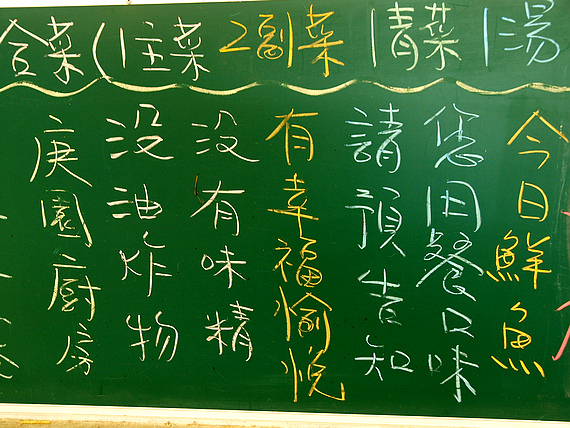 合菜(1主菜2副菜1青菜1湯
今日鮮魚
您用餐口味
請預告知
有幸福愉悅
沒有味精
沒油炸物
庚園廚房